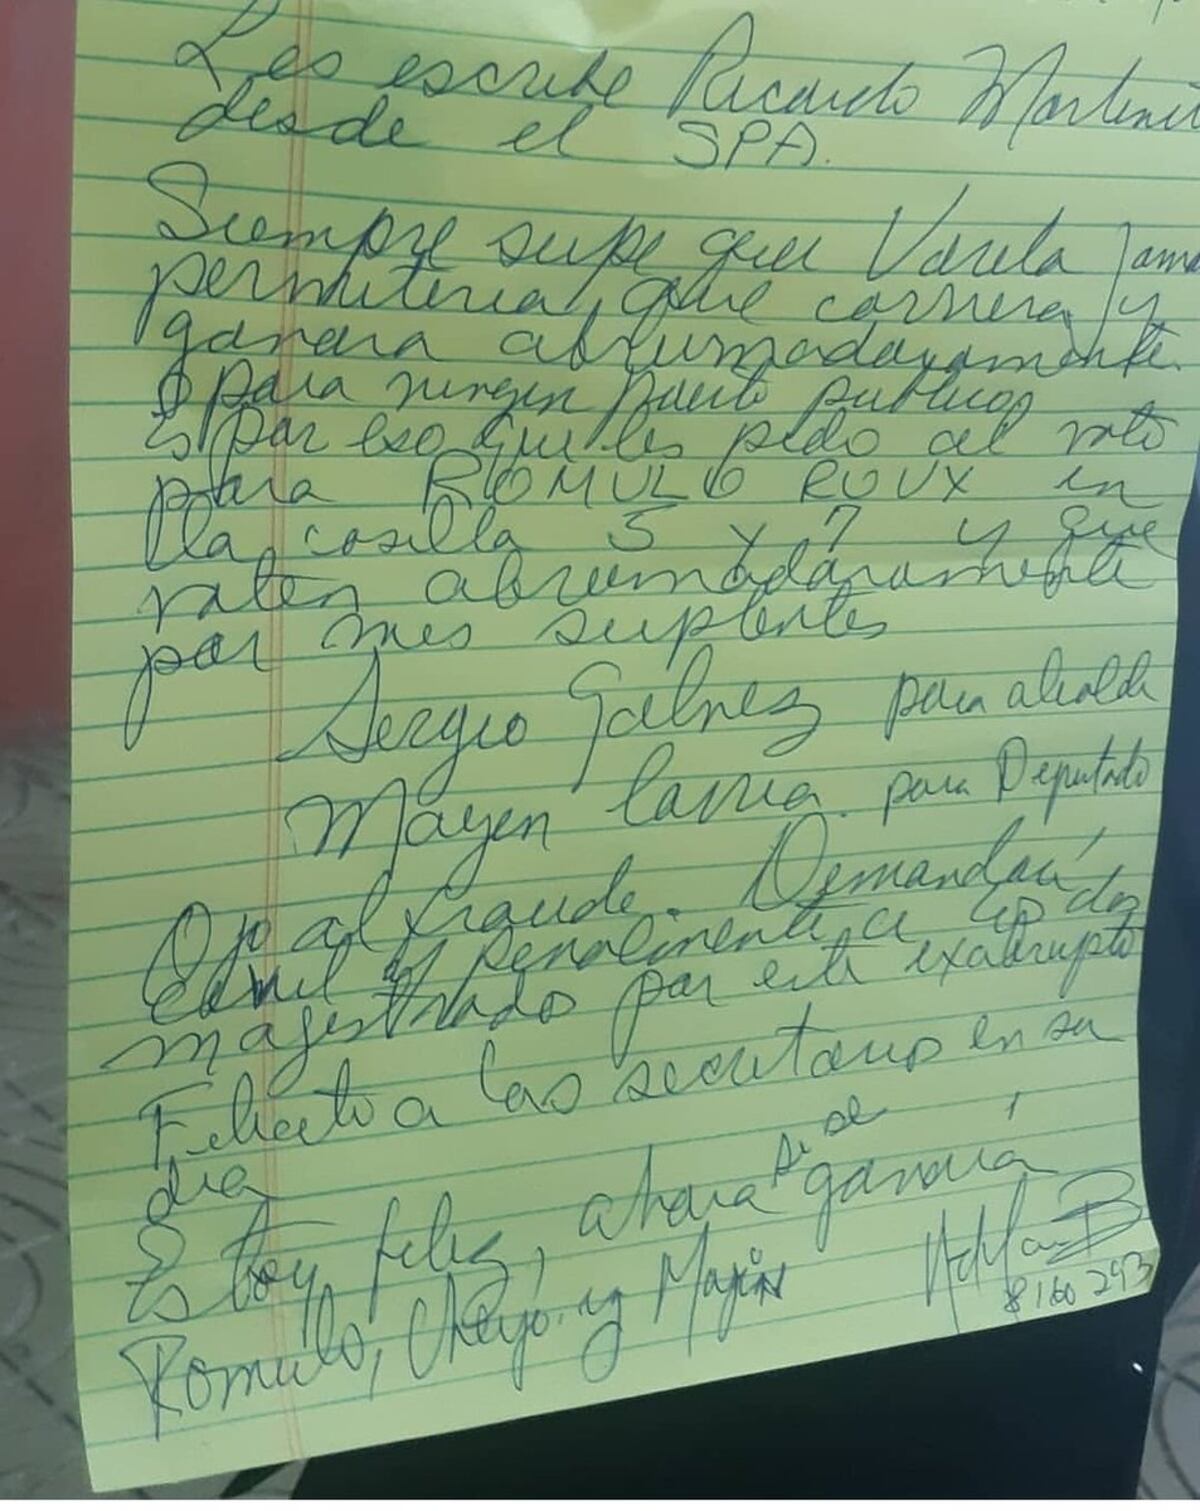 Les escribe Ricardo Martinel
desde el SPA.
Siempre supe que Varela jama
permitiria, que corriera, y
ganara abrumadoramente.
para ningun puesto publico
Es por eso que les pido al voto
para ROMULO ROUX en
la casilla 5 y 7 y que
voten abrumadoramente
por mis suplentes
Sergio Galvez para alcalde
Mayen para Diputado
Ojo al fraude. Demandaré
civil y penalmente a los dos
magistrados por este exabrupto
Felicito a las secretarias en su
dia
Estoy feliz, ahora si se ganará
Romulo, Cheyo y Mayin
8160293